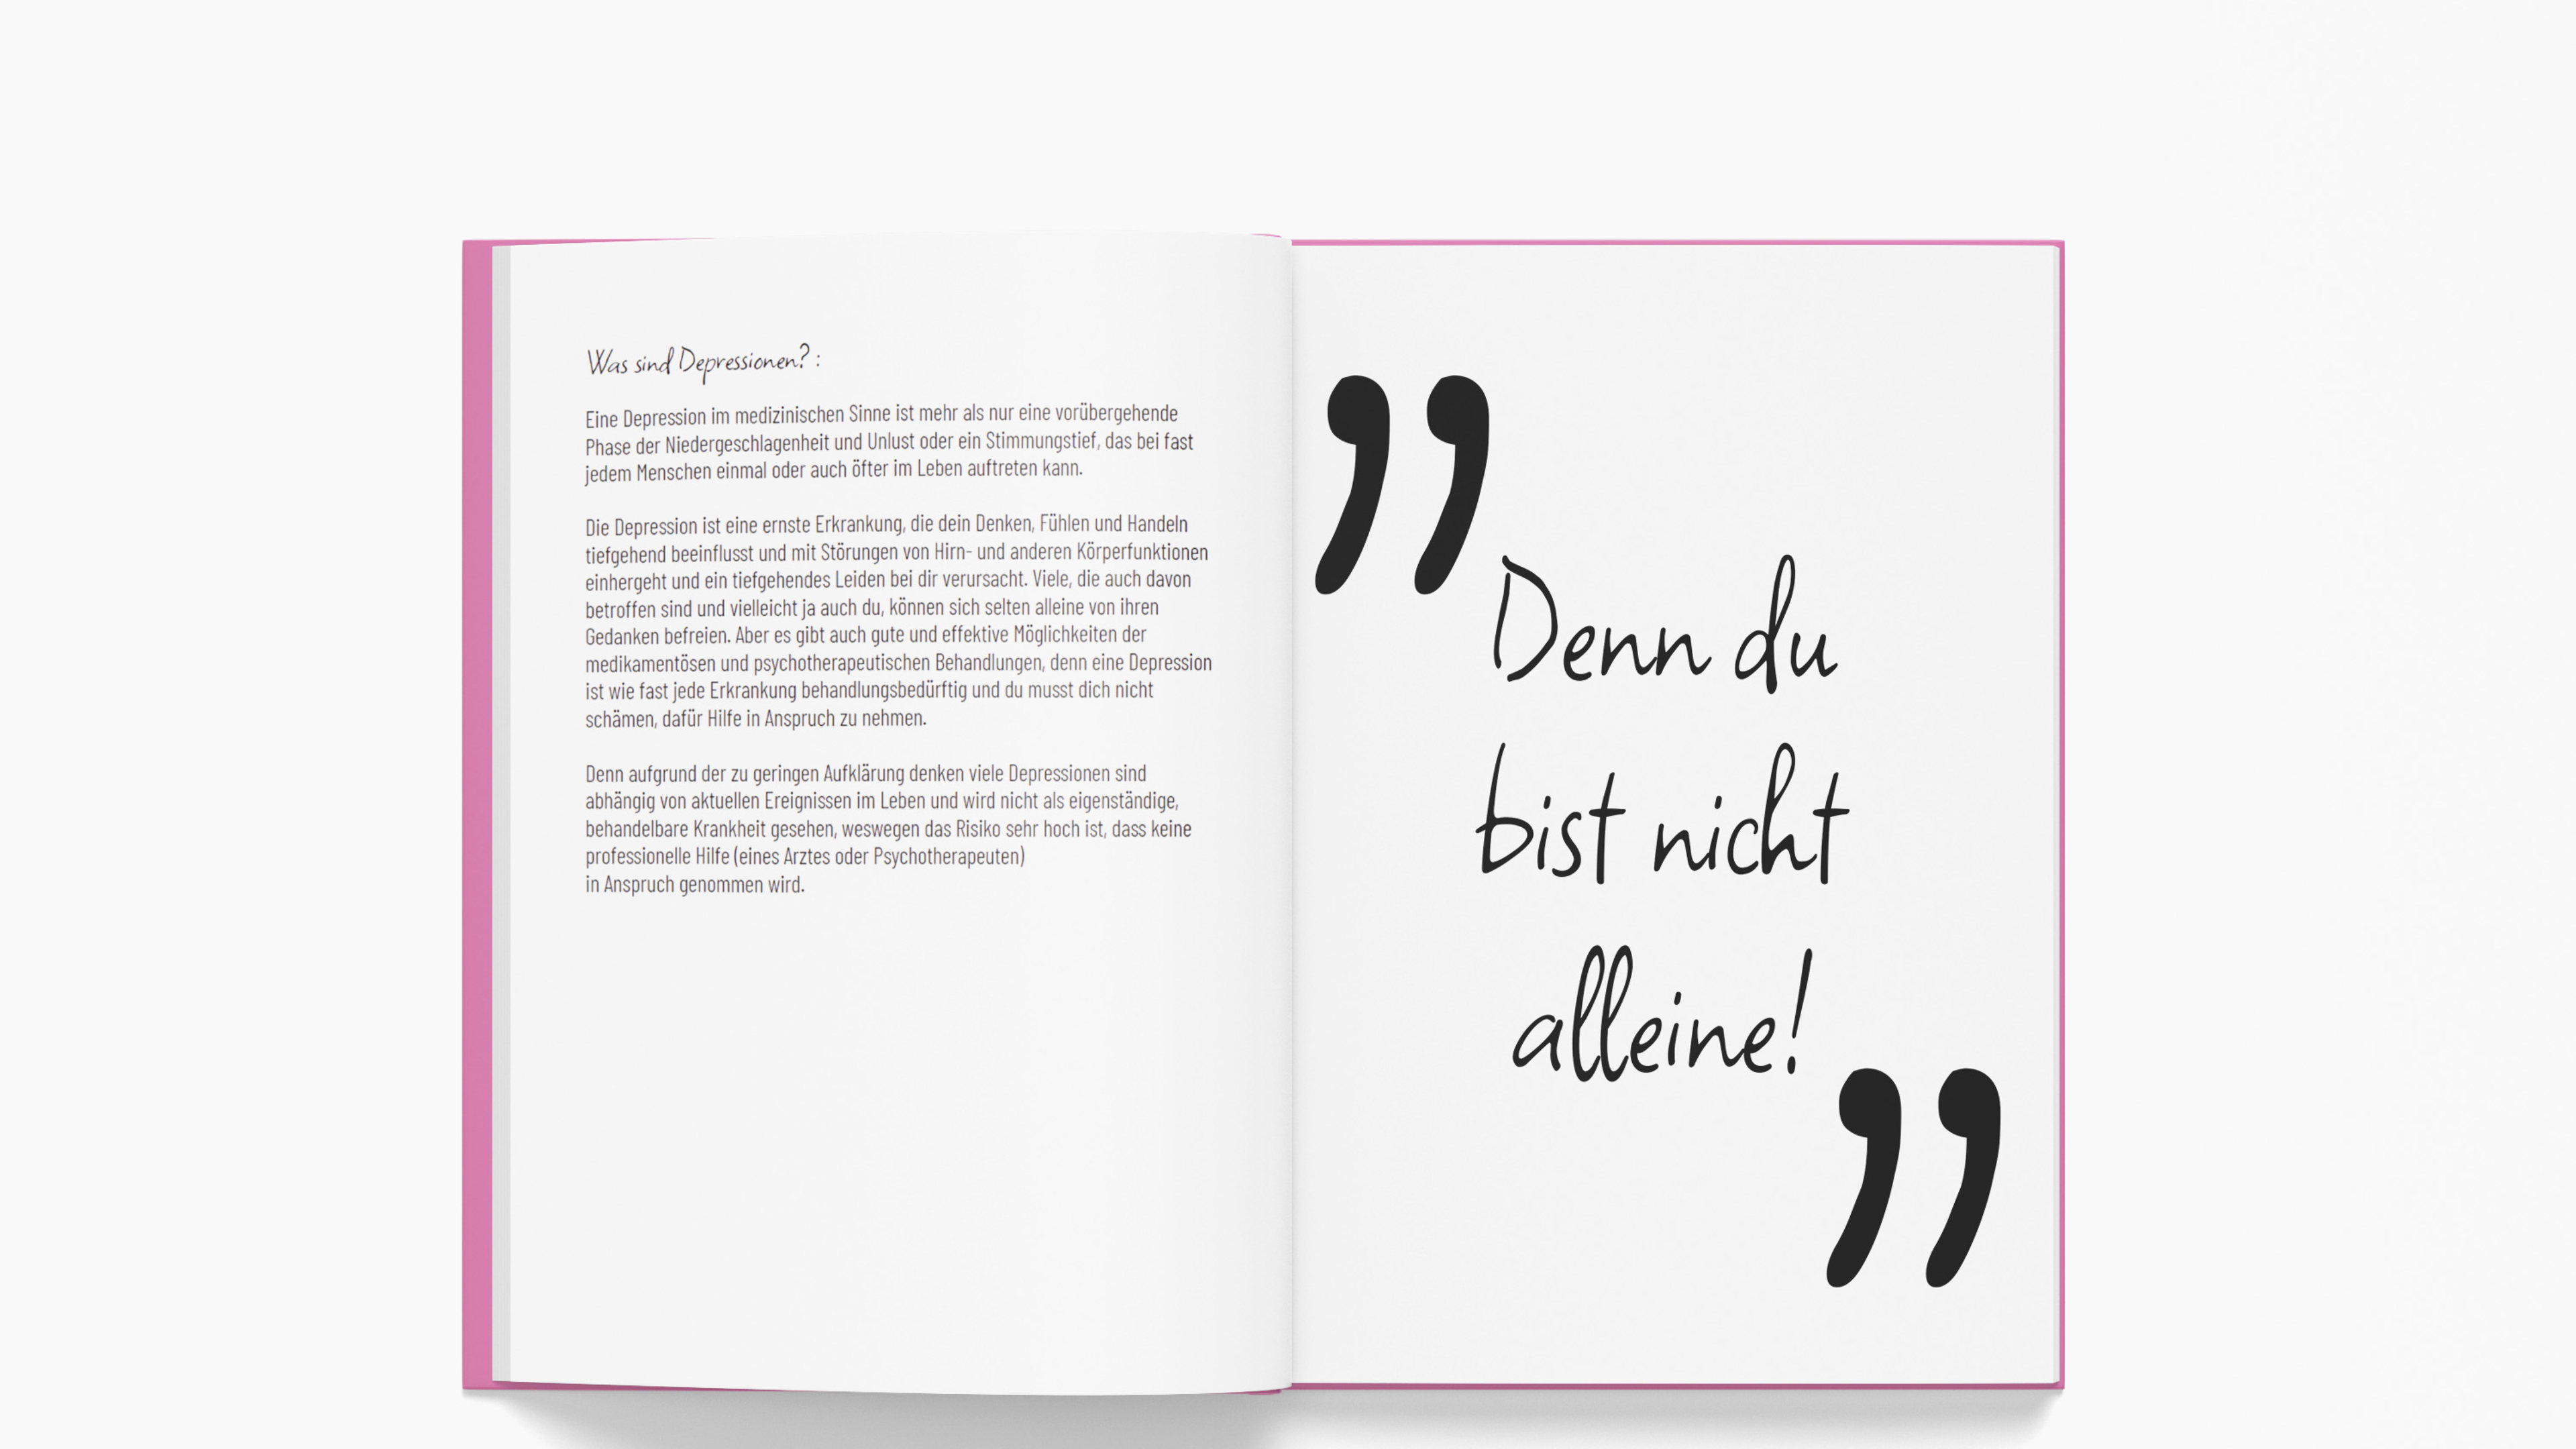 Was sind Depressionen? :
Eine Depression im medizinischen Sinne ist mehr als nur eine vorübergehende
Phase der Niedergeschlagenheit und Unlust oder ein Stimmungstief, das bei fast
jedem Menschen einmal oder auch öfter im Leben auftreten kann.
Die Depression ist eine ernste Erkrankung, die dein Denken, Fühlen und Handeln
tiefgehend beeinflusst und mit Störungen von Hirn- und anderen Körperfunktionen
einhergeht und ein tiefgehendes Leiden bei dir verursacht. Viele, die auch davon
betroffen sind und vielleicht ja auch du, können sich selten alleine von ihren
Gedanken befreien. Aber es gibt auch gute und effektive Möglichkeiten der
medikamentösen und psychotherapeutischen Behandlungen, denn eine Depression
ist wie fast jede Erkrankung behandlungsbedürftig und du musst dich nicht
schämen, dafür Hilfe in Anspruch zu nehmen.
Denn aufgrund der zu geringen Aufklärung denken viele Depressionen sind
abhängig von aktuellen Ereignissen im Leben und wird nicht als eigenständige,
behandelbare Krankheit gesehen, weswegen das Risiko sehr hoch ist, dass keine
professionelle Hilfe (eines Arztes oder Psychotherapeuten)
in Anspruch genommen wird.
”Denn du
bist nicht
alleine!”